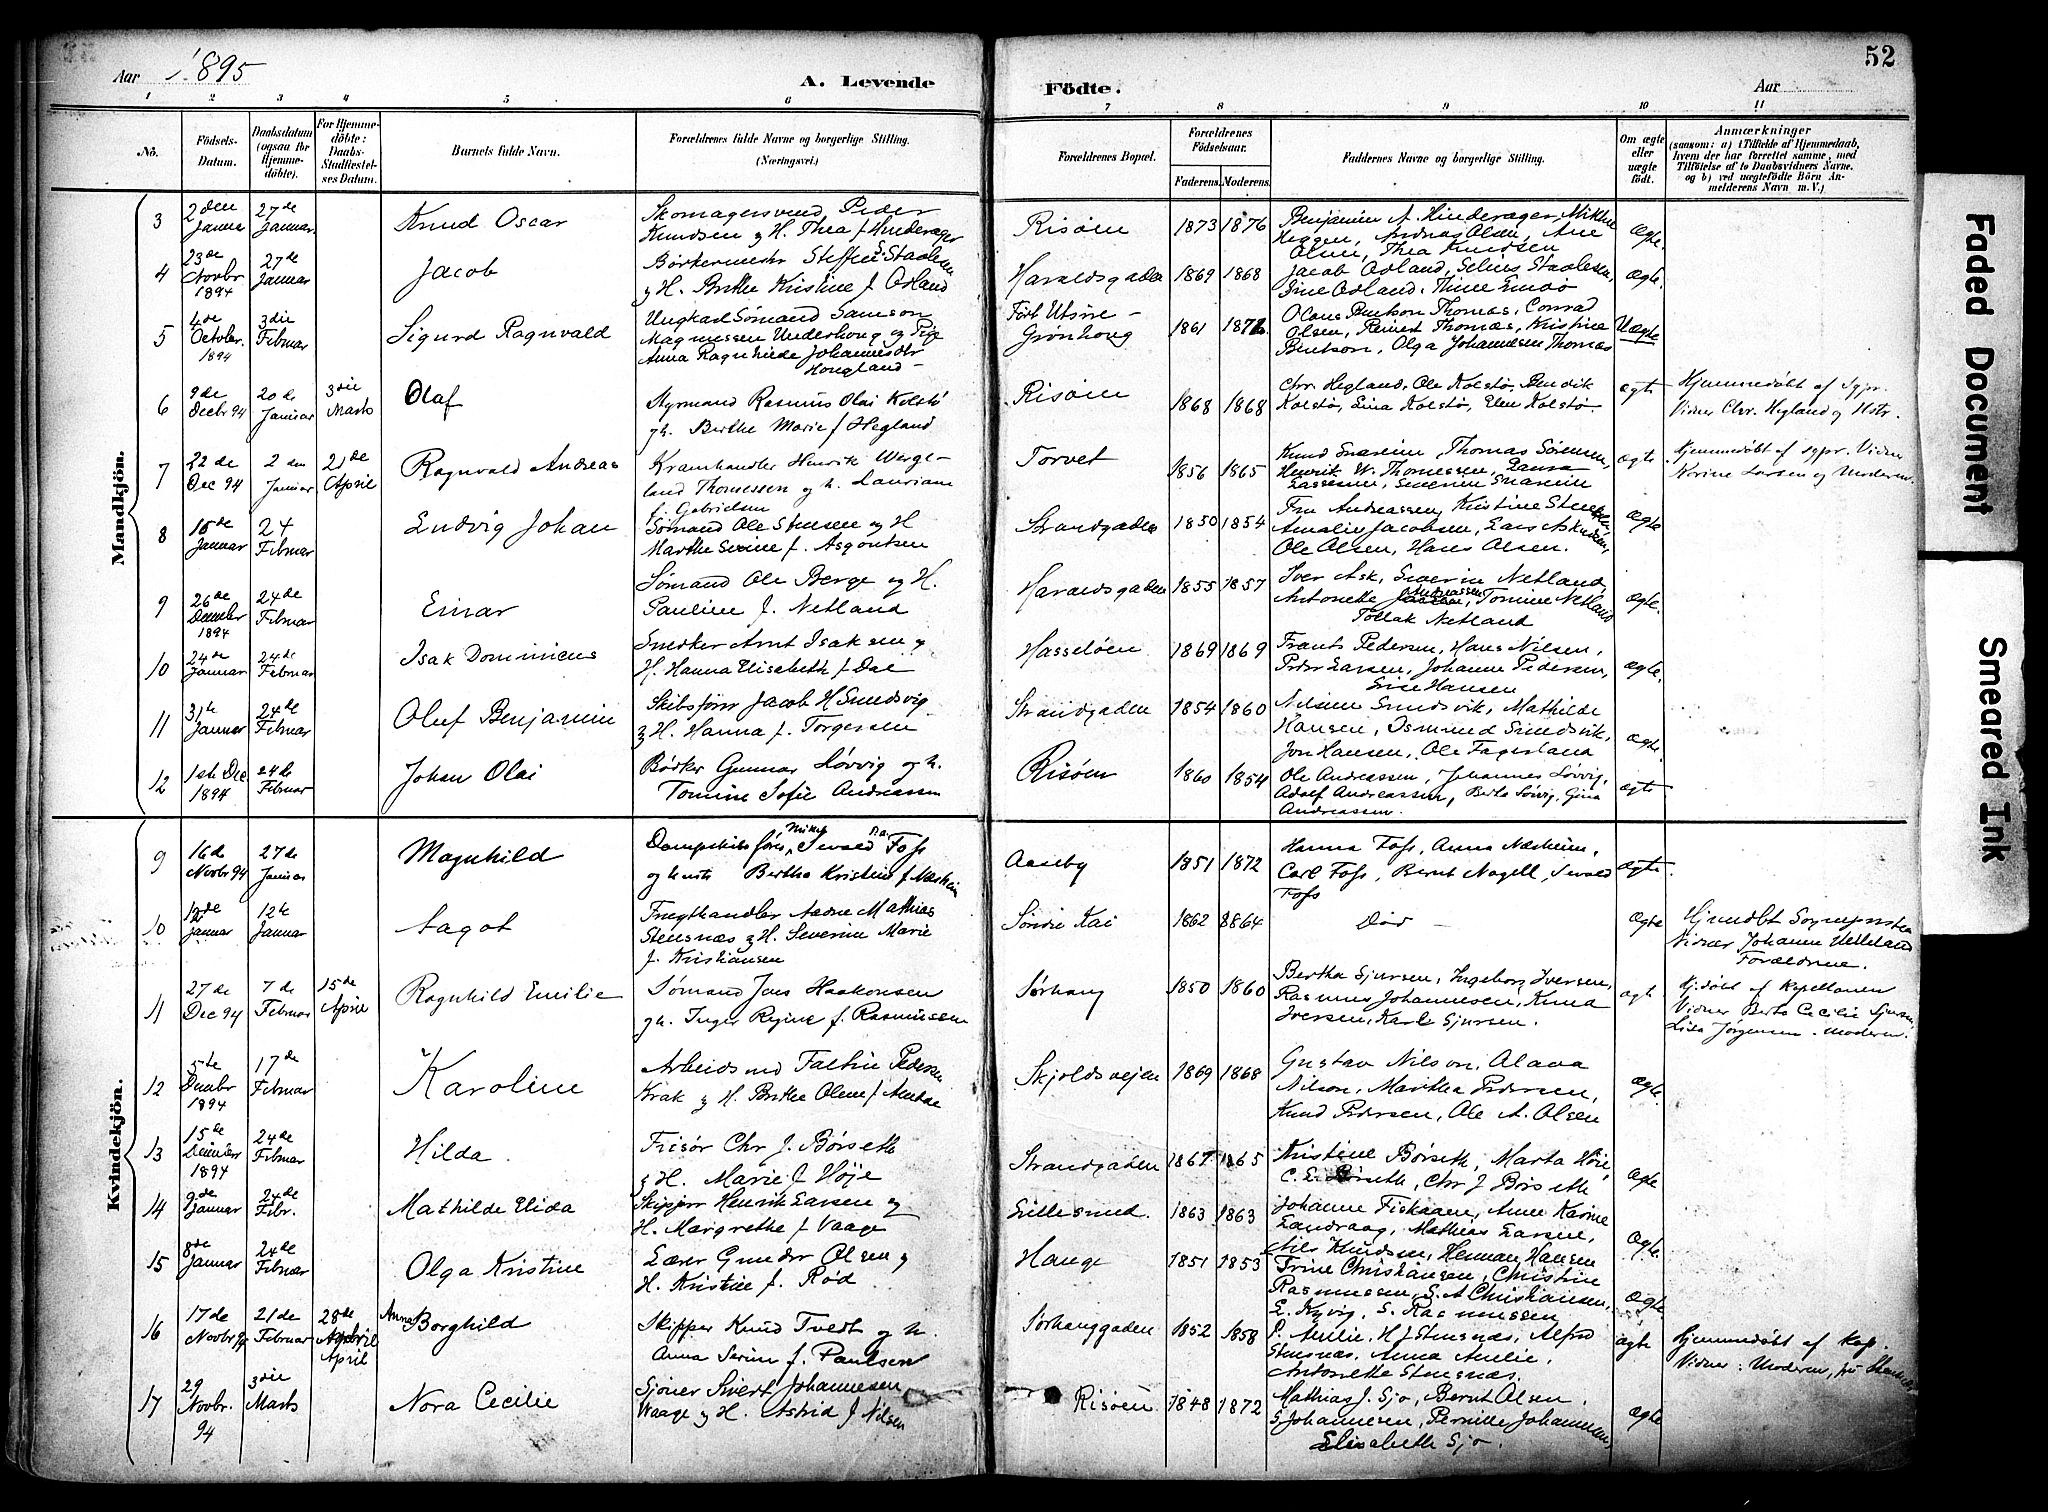 52
Aar 1895
A. Levende
Födte.
Aar
1 2 3 4 5 6 7 8 9 10 11
No.
Födsels-Datum.
Daabsdatum (ogsaa for Hjemmedöbte).
For Hjemmedöbte: Daabs-Stadfæstelses Datum.
Barnets fulde Navn.
Forældrenes fulde Navne og borgerlige Stilling. (Næringsvei.)
Forældrenes Bopæl.
Forældrenes Födselsaar.
Faderens. Moderens.
Faddernes Navne og borgerlige Stilling.
Om ægte eller uægte födt.
Anmærkninger
(saasom: a) i Tilfælde af Hjemmedaab, hvem der har forrettet samme, med Tilföielse af to Daabsvidners Navne. og b) ved uægtefödte Börn Anmelderens Navn m. V.)
Mandkjön.
3 2den Januar 27de Januar. Knud Oscar Skomagersvend Peder Knudsen & H. Thea f Hinderager Risøen 1873 1876 Benjamin A. Hinderager, Heggen, Andreas Olsen, Ane Olsen, Thea Knudsen Ægte.
4 23de Novbr 1894 27de Januar Jacob & H. Berthe Kristine f. Odland Haraldsgaden 1869 1868 Jacob Odland, Selius Staalesen, Sine Odland. Ægte.
5 4de October. 1894 3die Februar Sigurd Ragnvald Ungkarl Sømand Samson Magnussen Underhoug og Pige Anna Ragnhilde Johannesdtr Hougland Födt Utsire - Grønhoug 1861 Olaus Bentson Thomas, Conrad Olsen, Reinert Thomas, Kristine Bentson, Olga Johannesen Thomas Uægte
6 9de Decbr 94 20de Januar 3die Marts Olaf Styrmand Rasmus Olai Kolstö & h. Berthe Marie f Hegland Risøen 1868 1868 Chr. Hegland, Ole Kolstø, Bendik Kolstø, Sina Kolstø, Elen Kolstø ægte Hjemmedöbt af sgpr. Vidner Chr. Hegland og Hstr.
7 22de Dec 94 2den Januar 21de April Ragnvald Andreas Kramhandler Henrik Wergeland Thomessen og h. Lauriane f. Gabrielsen Torvet 1856 1865 Knud Snareim, Thomas Sörensen, Henrik W. Thomessen, Laura Lassesen, Severin Snareim ægte Hjemmedöbt af sgpr. Vidner Korine Larsen og Moderen.
8 15de Januar 24 Februar Ludvig Johan Sømand Ole Stensen og H Marthe Serine f. Asgautsen Strandgaden 1850 1854 Fru Andreassen, Kristine Stensen, Amalie Jacobsen, Lars Asknesen, Ole Olsen, Hans Olsen. Ægte
9 26de December 1894 24de Februar Einar Sømand Ole Berge og H. Pauline f. Netland Haraldsgaden 1855 1857 Iver Ask, Severin Netland, Antonette Andreassen, Tomine Netland Tollak Netland Ægte.
10 24de Januar 24de Februar Isak Dominicus Snedker Arnt Isaksen & H. Hanna Elisabeth f Dae Hasseløen 1869 1869 Frants Pedersen, Hans Nilsen, Peder Larsen, Johanne Pedersen, Sine Hansen Ægte.
11 31te Januar 24de Februar Oluf Benjamin Skibsfører Jacob H Smedsvig & H. Hanna f. Torgersen Strandgaden 1854 1860 Nilsine Smedsvik, Mathilde Hansen, Osmund Smedsvik, Jon Hansen, Ole Fagerland Ægte.
12 1ste Dec 1894 24de Februar Johan Olai Bödker Gunnar Lövvig og h. Tomine Sofie Andreassen Risøen 1860 1854 Ole Andreassen, Johannes Lövvig, Adolf Andreassen, Berta Lövvig, Gina Andreassen. ægte
Kvindekjön.
9 16de Novbr 94 27de Januar Magnhild Dampskibsfører, Sevald Foss og hustr Bertha Kristine f Næsheim Aaneby 1851 1872 Hanna Foss, Anna Næsheim, Carl Foss, Bernt Nagell, Sevald Foss ægte.
10 12de Januar 12te Januar Aagot Frugthandler Aadne Mathias Stensnæs & H. Severine Marie f. Kristiansen Søndre Kai 1862 1864 Död - Ægte Hjemdøbt Sognepresten Vidner Johanne Helleland Forældrene.
11 27de Dec 94 7de Februar 15de April Ragnhild Emilie Sømand Jens Haakonsen & h. Inger Regine f. Rasmussen Sørhaug 1850 1860 Bertha Sjursen, Ingeborg Iversen, Rasmus Johannesen, Knud Iversen, Karl Sjursen. ægte Hjdöbt af Kapellanen Vidner Berta Cecilie Sjursen, Lisa Jörgensen - Moderen.
12 5te Decbr 1894 17de Februar Karoline Arbeidsmd Faltin Pedersen Krak & H. Berthe Oline f. Amdae Skjoldsvejen 1869 1868 Gustav Nilson, Olava Nilson, Martha Pedersen, Knud Pedersen, Ole A. Olsen Ægte.
13 15de December 1894 24de Februar Hilda. Frisør Chr J. Børseth & H. Marie f Høje Strandgaden 1867 1865 Kristine Børseth, Marta Høie, C. E. Børseth, Chr J Børseth Ægte
14 9de Januar 24de Febr. Mathilde Elida Skipper Henrik Larsen og H. Margrethe f Vaage Lillesund. 1863 1863 Johanne Fiskaaen, Anne Karine Landraag, Mathias Larsen, Nils Knudsen, Herman Hansen Ægte.
15 8de Januar 24de Februar Olga Kristine Lærer Gunder Olsen & H. Kristine f. Rød Hauge 1851 1853 Trine Christiansen, Christine Rasmussen, S. A Christiansen, E. Kyvig, S. Rasmussen Ægte
16 17de Novbr 94 21de Februar 28de April April Anna Borghild Skipper Knud Tvedt og h. Anna Serine f. Paulsen Sørhauggaden 1852 1858 P. Amlie, H J Stensnæs, Alfred Stensnæs, Anna Amlie, Antonette Stensnæs. ægte Hjemmedöbt af Kap. Vidner: Moderen,
17 29 Novbr. 94 3die Marts Nora Cecilie Sjöner Sivert Johannesen Waage & H. Astrid f Nilsen Risøen 1848 1872 Mathias J. Sjo, Bernt Olsen, S Johannesen, Pernille Johannesen, Elisabeth Sjo. Ægte
Faded Document
Smeared Ink